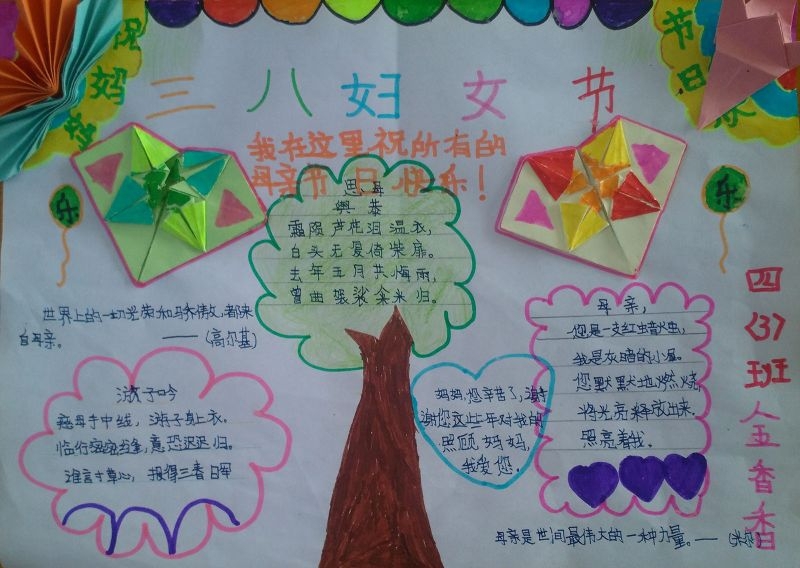 祝
妈
三八妇女节
节
日
乐
我在这里祝所有的
母亲节日快乐！
思母
與恭
霜陨芦花泪湿衣，
白头无爱倚柴扉。
去年五月共悔雨，
曾曲袈裟籴米归。
乐
乐
世界上的一切光荣和骄傲，都来
自母亲。
——(高尔基)
游子吟
慈母手中线，游子身上衣。
临行密密缝，意恐迟迟归。
谁言寸草心，报得三春日军
妈妈，您辛苦了，谢谢
谢您这些年对我的
照顾，妈妈，
我爱您。
母亲，
您是一支红蜡虫，
我是灰暗的小屋。
您默默地燃烧
将光亮释放出来.
照亮着我.
母亲是世间最伟大的一种力量。——(米尔)
四
(3)
班
金
香
香